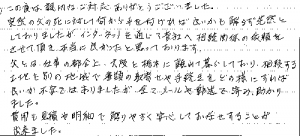 この度は親切なご対応ありがとうございました。
突然の父の死に対して何から手を付ければ良いかも解らず呆然と
しておりましたがインターネットを通じて貴社へ相続関係の依頼を
させて頂き本当に良かったと思っております。
父とは仕事の都合上、大阪と橋本に離れて暮らしており、相続する
土地も別の地域で書類の取寄せや手続きをどの様にすれば
良いか不安はありましたが全てメールや郵送で済み、助かり
ました。
費用も見積や明細で解りやすく安心してお任せすることが
出来ました。